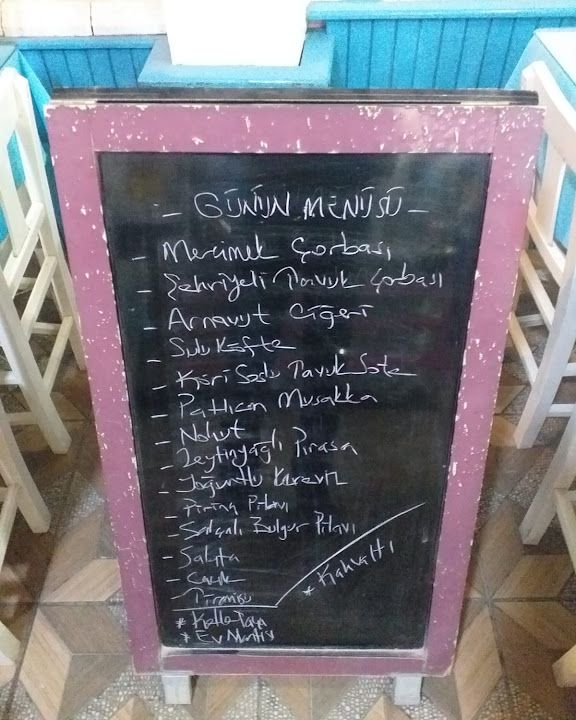 - GÜNÜN MENÜSÜ -
- Mercimek Çorbası
- Şehriyeli Tavuk Çorbası
- Arnavut Ciğeri
- Sulu Köfte
- Köri Soslu Tavuk Sote
- Patlıcan Musakka
- Nohut
- Zeytinyağlı Pırasa
- Yoğurtlu Kereviz
- Pirinç Pilavı
- Salçalı Bulgur Pilavı
- Salata
- Cacık
- Tiramisu
* Kahvaltı
* Kelle Paça
* Ev Mantısı